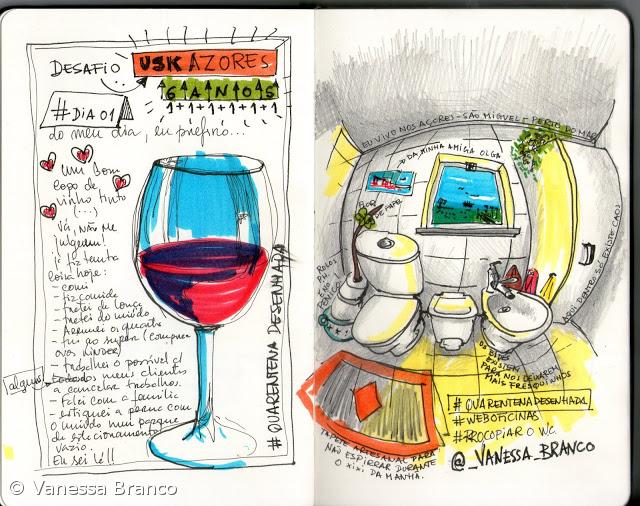 DESAFIO
USK AZORES
6 ANOS
1+1+1+1+1+1
#DIA 01
do meu dia, eu prefiro...
Um bom
copo de
vinho tinto
(...)
Vá, não me
julguem!
já fiz tanta
coisa hoje:
- comi
- fiz comida
- tratei da louça
- tratei do miúdo
- Arrumei o quarto
- fui ao super (comprar
ovos KINDER)
- trabalhei o possível c/
alguns
dos meus clientes
a cancelar trabalhos.
- Falei com a família
- estiquei a perna com
o miúdo num parque
de estacionamento
vazio.
Eu sei lá!!
#QUARENTENA DESENHADA
© Vanessa Branco
EU VIVO NOS AÇORES - SÃO MIGUEL - PERTO DO MAR
DA MINHA AMIGA OLGA
FLOR
DE PAPEL
ROLOS
P.H.
E NO
AQUI DENTRO SÓ EXISTE CAOS
OS BIDÉS
EXISTEM
PARA NOS DEIXAREM
MAIS FRESQUINHOS
TAPETE ARTESANAL PARA
NÃO ESPIRRAR DURANTE
O XIXI DA MANHÃ.
#QUARENTENADESENHADA
#WEBOFICINAS
#PROCOPIAR O WC
@_VANESSA_BRANCO